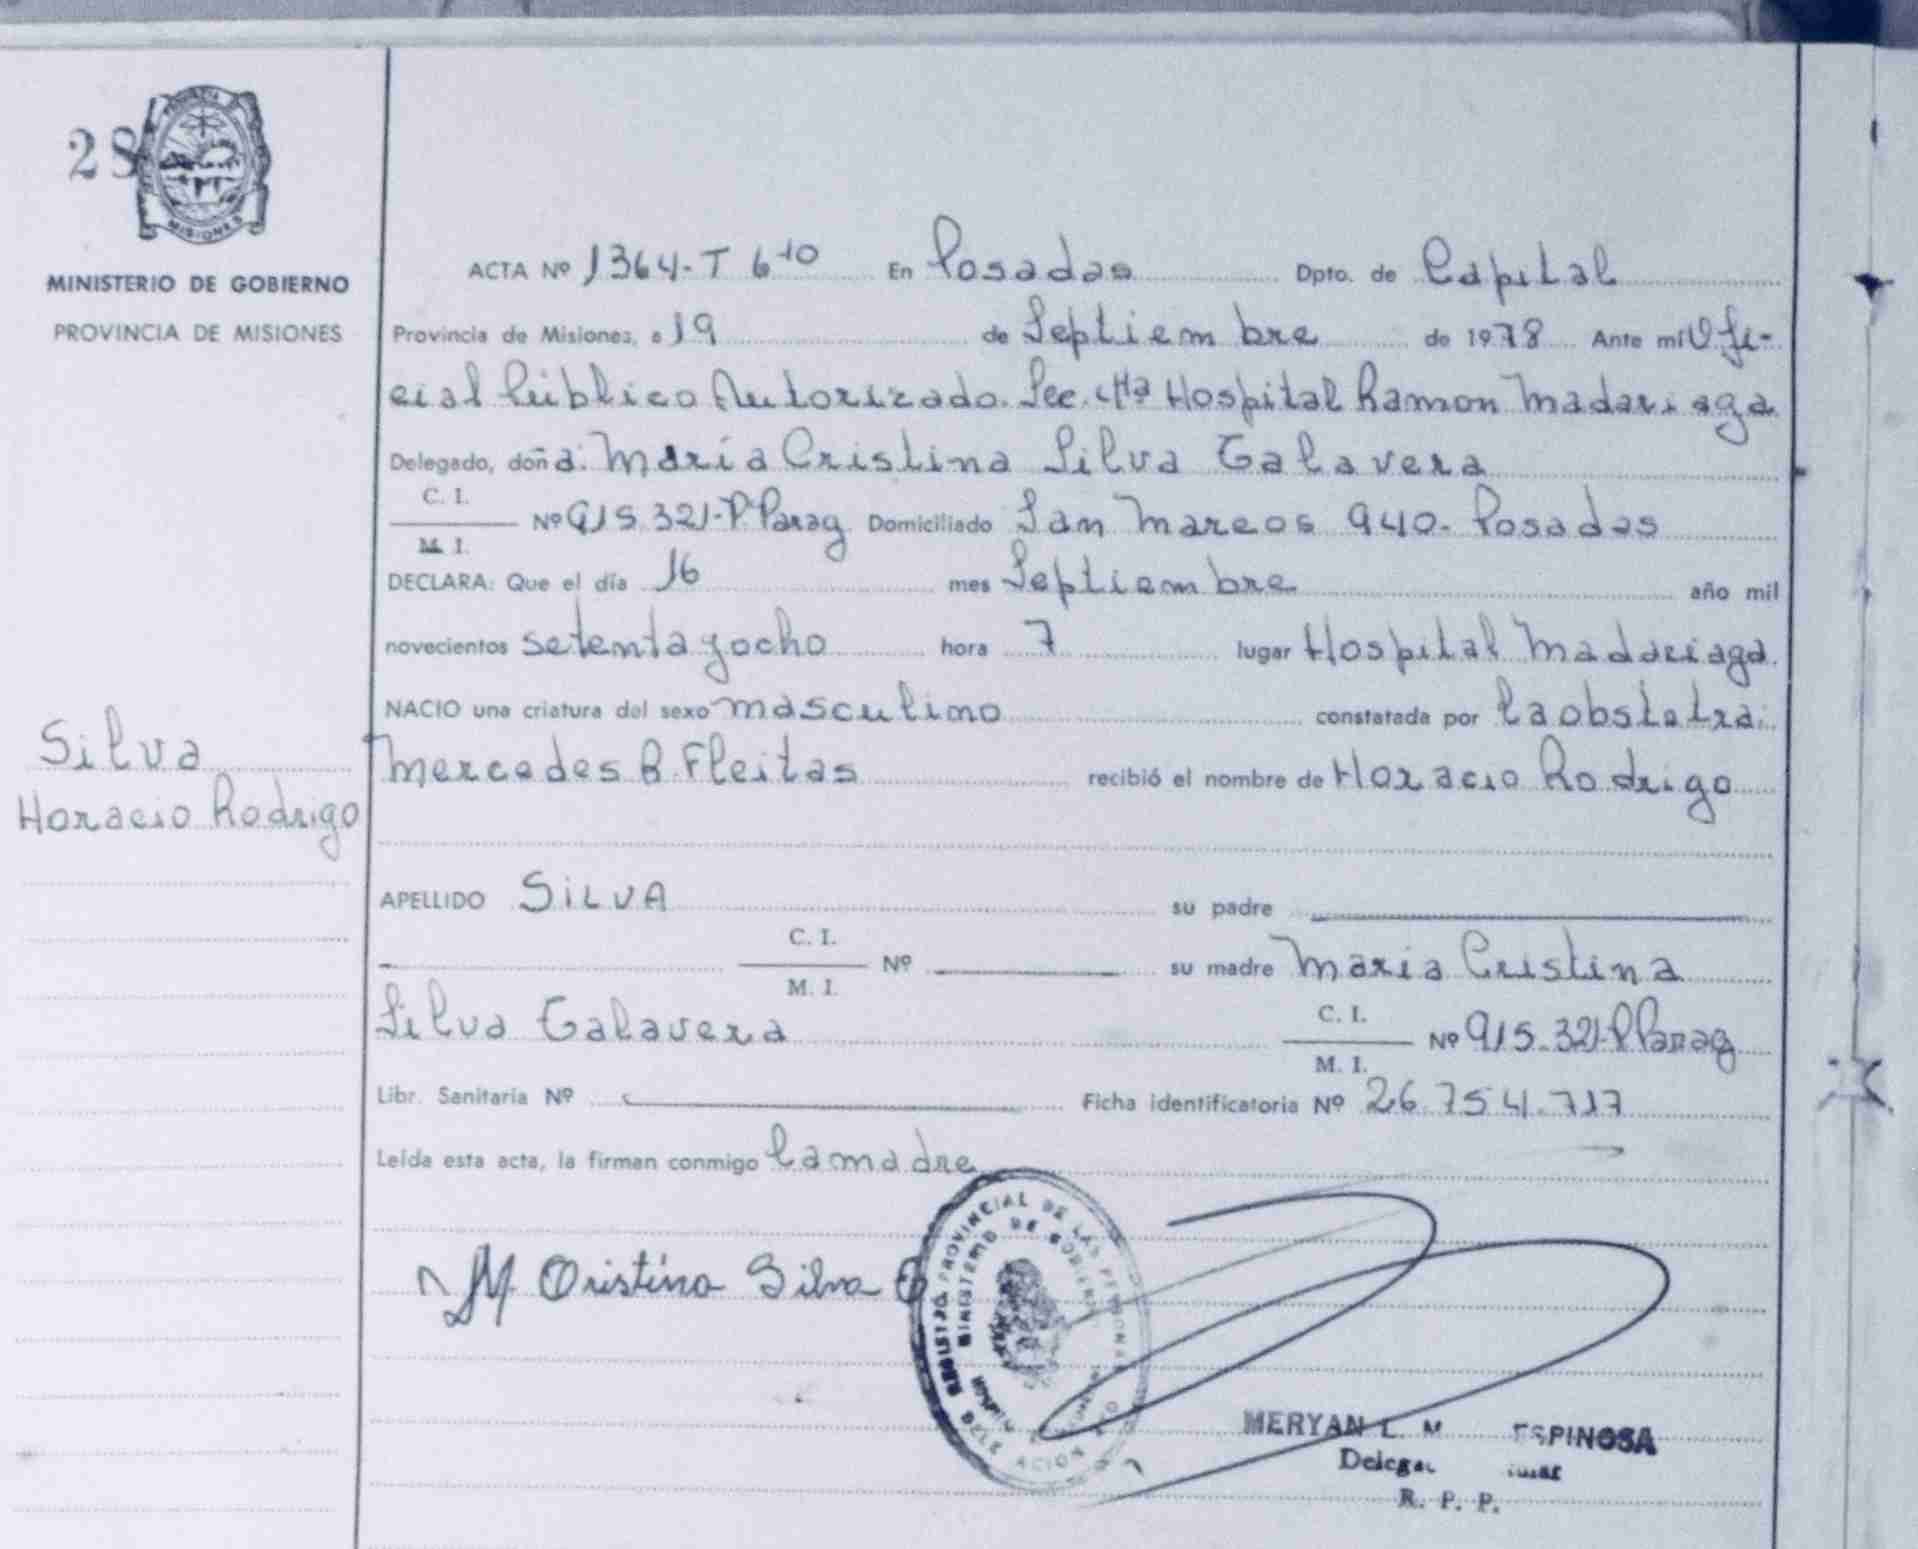 28
MISIONES
MINISTERIO DE GOBIERNO
PROVINCIA DE MISIONES
Silva
Horacio Rodrigo
ACTA Nº 1364-T 6-10 En Posadas Dpto. de Capital
Provincia de Misiones, a 19 de Septiembre de 1978 Ante mí Ofi-
cial Público Autorizado. Sec. 4ta Hospital Ramon Madariaga
Delegado, doña: María Cristina Silva Galavera
C. I.
Nº 915.321-P. Parag Domiciliado San Marcos 940- Posadas
M. I.
DECLARA: Que el día 16 mes Septiembre año mil
novecientos setenta y ocho hora 7 lugar Hospital Madariaga.
NACIO una criatura del sexo masculino constatada por la obstetra:
Mercedes B. Fleitas recibió el nombre de Horacio Rodrigo
APELLIDO SILVA su padre
C. I.
Nº su madre Maria Cristina
M. I.
Silva Galavera
C. I.
Nº 915.321-P Parag
M. I.
Libr. Sanitaria Nº Ficha identificatoria Nº 26.754.717
Leída esta acta, la firman conmigo la madre
M Cristina Silva G
REGISTRO PROVINCIAL DE LAS PERSONAS
MINISTERIO DE GOBIERNO
MERYAN L. M ESPINOSA
R. P. P.